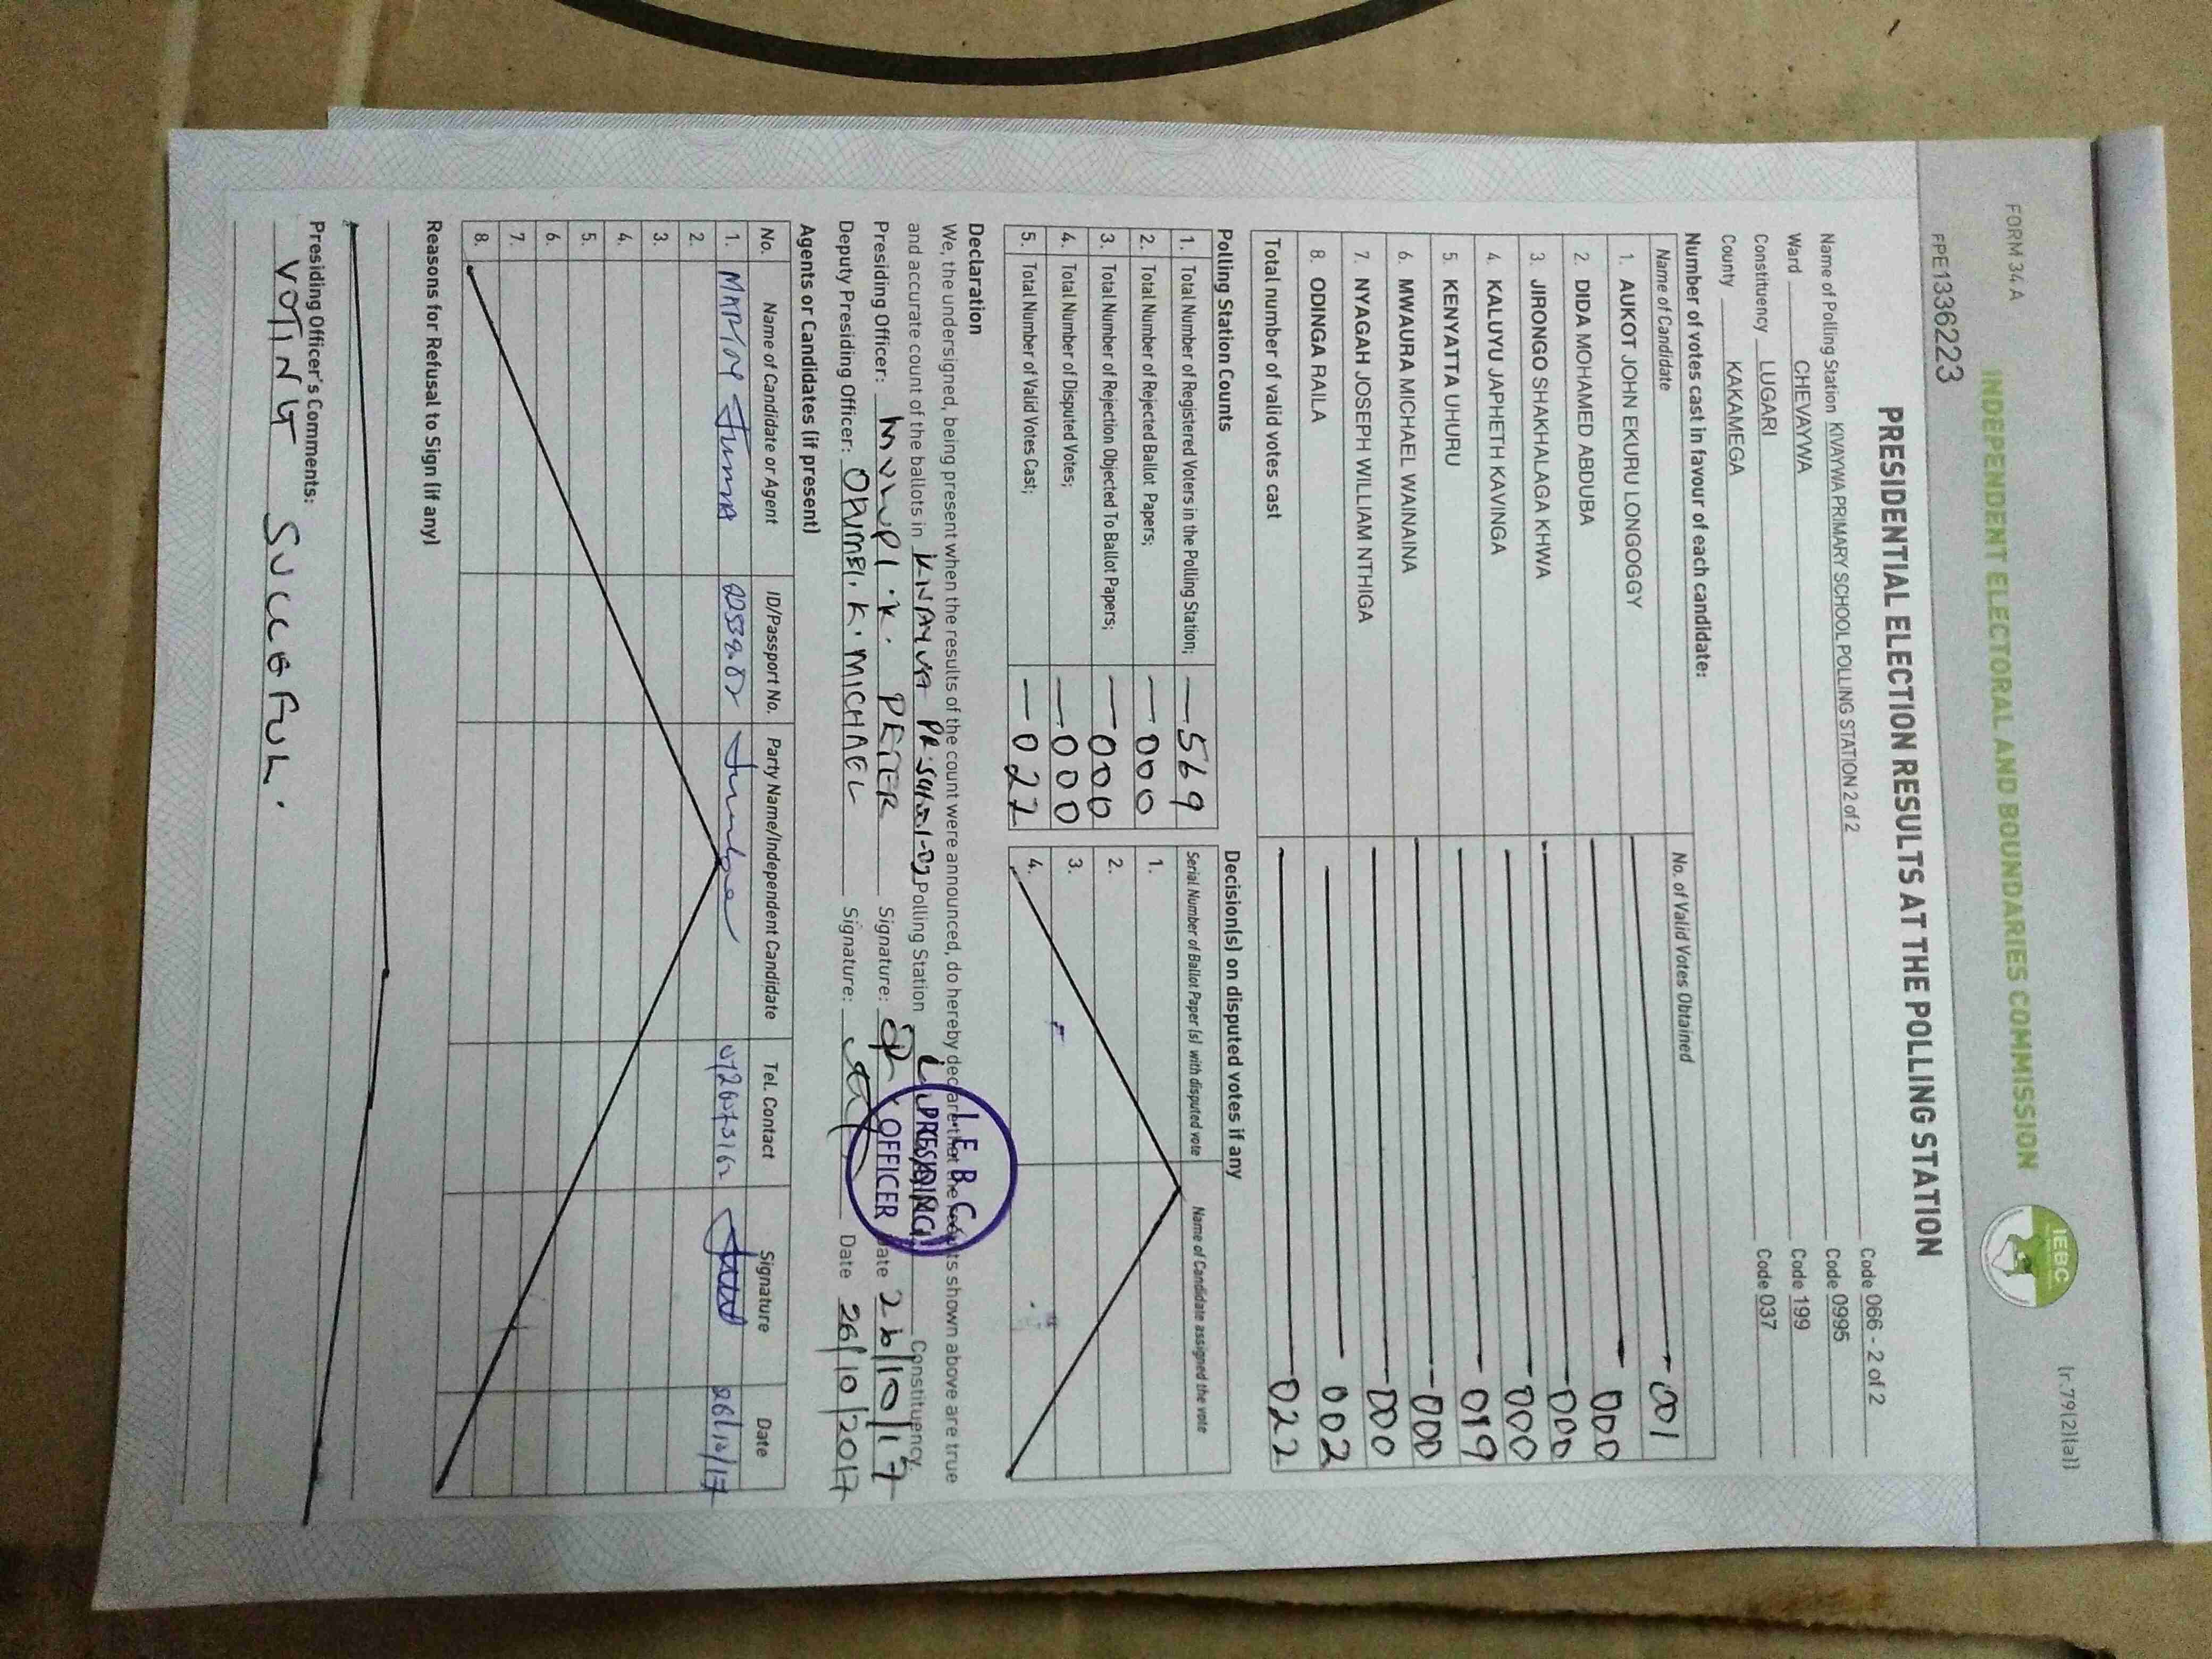 FORM 34 A
(r.79(2)(a))
INDEPENDENT ELECTORAL AND BOUNDARIES COMMISSION
IEBC
FPE1336223
PRESIDENTIAL ELECTION RESULTS AT THE POLLING STATION
Name of Polling Station KIVAYWA PRIMARY SCHOOL POLLING STATION 2 of 2 Code 066 - 2 of 2
Ward CHEVAYWA Code 0995
Constituency LUGARI Code 199
County KAKAMEGA Code 037
Number of votes cast in favour of each candidate:
Name of Candidate No. of Valid Votes Obtained
1. AUKOT JOHN EKURU LONGOGGY 001
2. DIDA MOHAMED ABDUBA 000
3. JIRONGO SHAKHALAGA KHWA 000
4. KALUYU JAPHETH KAVINGA 000
5. KENYATTA UHURU 019
6. MWAURA MICHAEL WAINAINA 000
7. NYAGAH JOSEPH WILLIAM NTHIGA 000
8. ODINGA RAILA 002
Total number of valid votes cast 022
Polling Station Counts
1. Total Number of Registered Voters in the Polling Station; — 569
2. Total Number of Rejected Ballot Papers; — 000
3. Total Number of Rejection Objected To Ballot Papers; — 000
4. Total Number of Disputed Votes; — 000
5. Total Number of Valid Votes Cast; — 022
Decision(s) on disputed votes if any
Serial Number of Ballot Paper (s) with disputed vote Name of Candidate assigned the vote
1.
2.
3.
4.
Declaration
We, the undersigned, being present when the results of the count were announced, do hereby declare that the results shown above are true
and accurate count of the ballots in Polling Station Constituency.
Presiding Officer: PETER Signature: Date 26/10/17
Deputy Presiding Officer: K. MICHAEL Signature: Date 26/10/2017
I.E.B.C
PRESIDING
OFFICER
Agents or Candidates (if present)
No. Name of Candidate or Agent ID/Passport No. Party Name/Independent Candidate Tel. Contact Signature Date
1. Juma 26/10/17
2.
3.
4.
5.
6.
7.
8.
Reasons for Refusal to Sign (if any)
Presiding Officer's Comments:
VOTING SUCCEFUL.